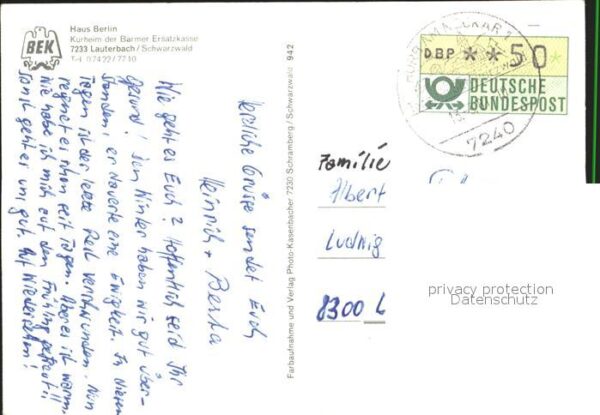 Haus Berlin
Kurheim der Barmer Ersatzkasse
7233 Lauterbach/Schwarzwald
Tel. 07422/7710
BEK
Wie geht es Euch? Hoffentlich seid Ihr
gesund! Den Winter haben wir gut über-
standen! er dauerte eine Ewigkeit. In diesen
Tagen ist der letzte verschwunden. Nun
regnet es schon seit Tagen. Aber es ist warm.
Wie habe ich mich auf den Frühling gefreut!!
Sonst geht es uns gut. Auf Wiedersehen!
Herzliche Grüße sendet Euch
Heinrich + Berta
Farbaufnahme und Verlag Photo-Kasenbacher 7230 Schramberg/Schwarzwald 942
DBP **50*
DEUTSCHE
BUNDESPOST
7240
Familie
Albert
Ludwig
8300 L
privacy protection
Datenschutz